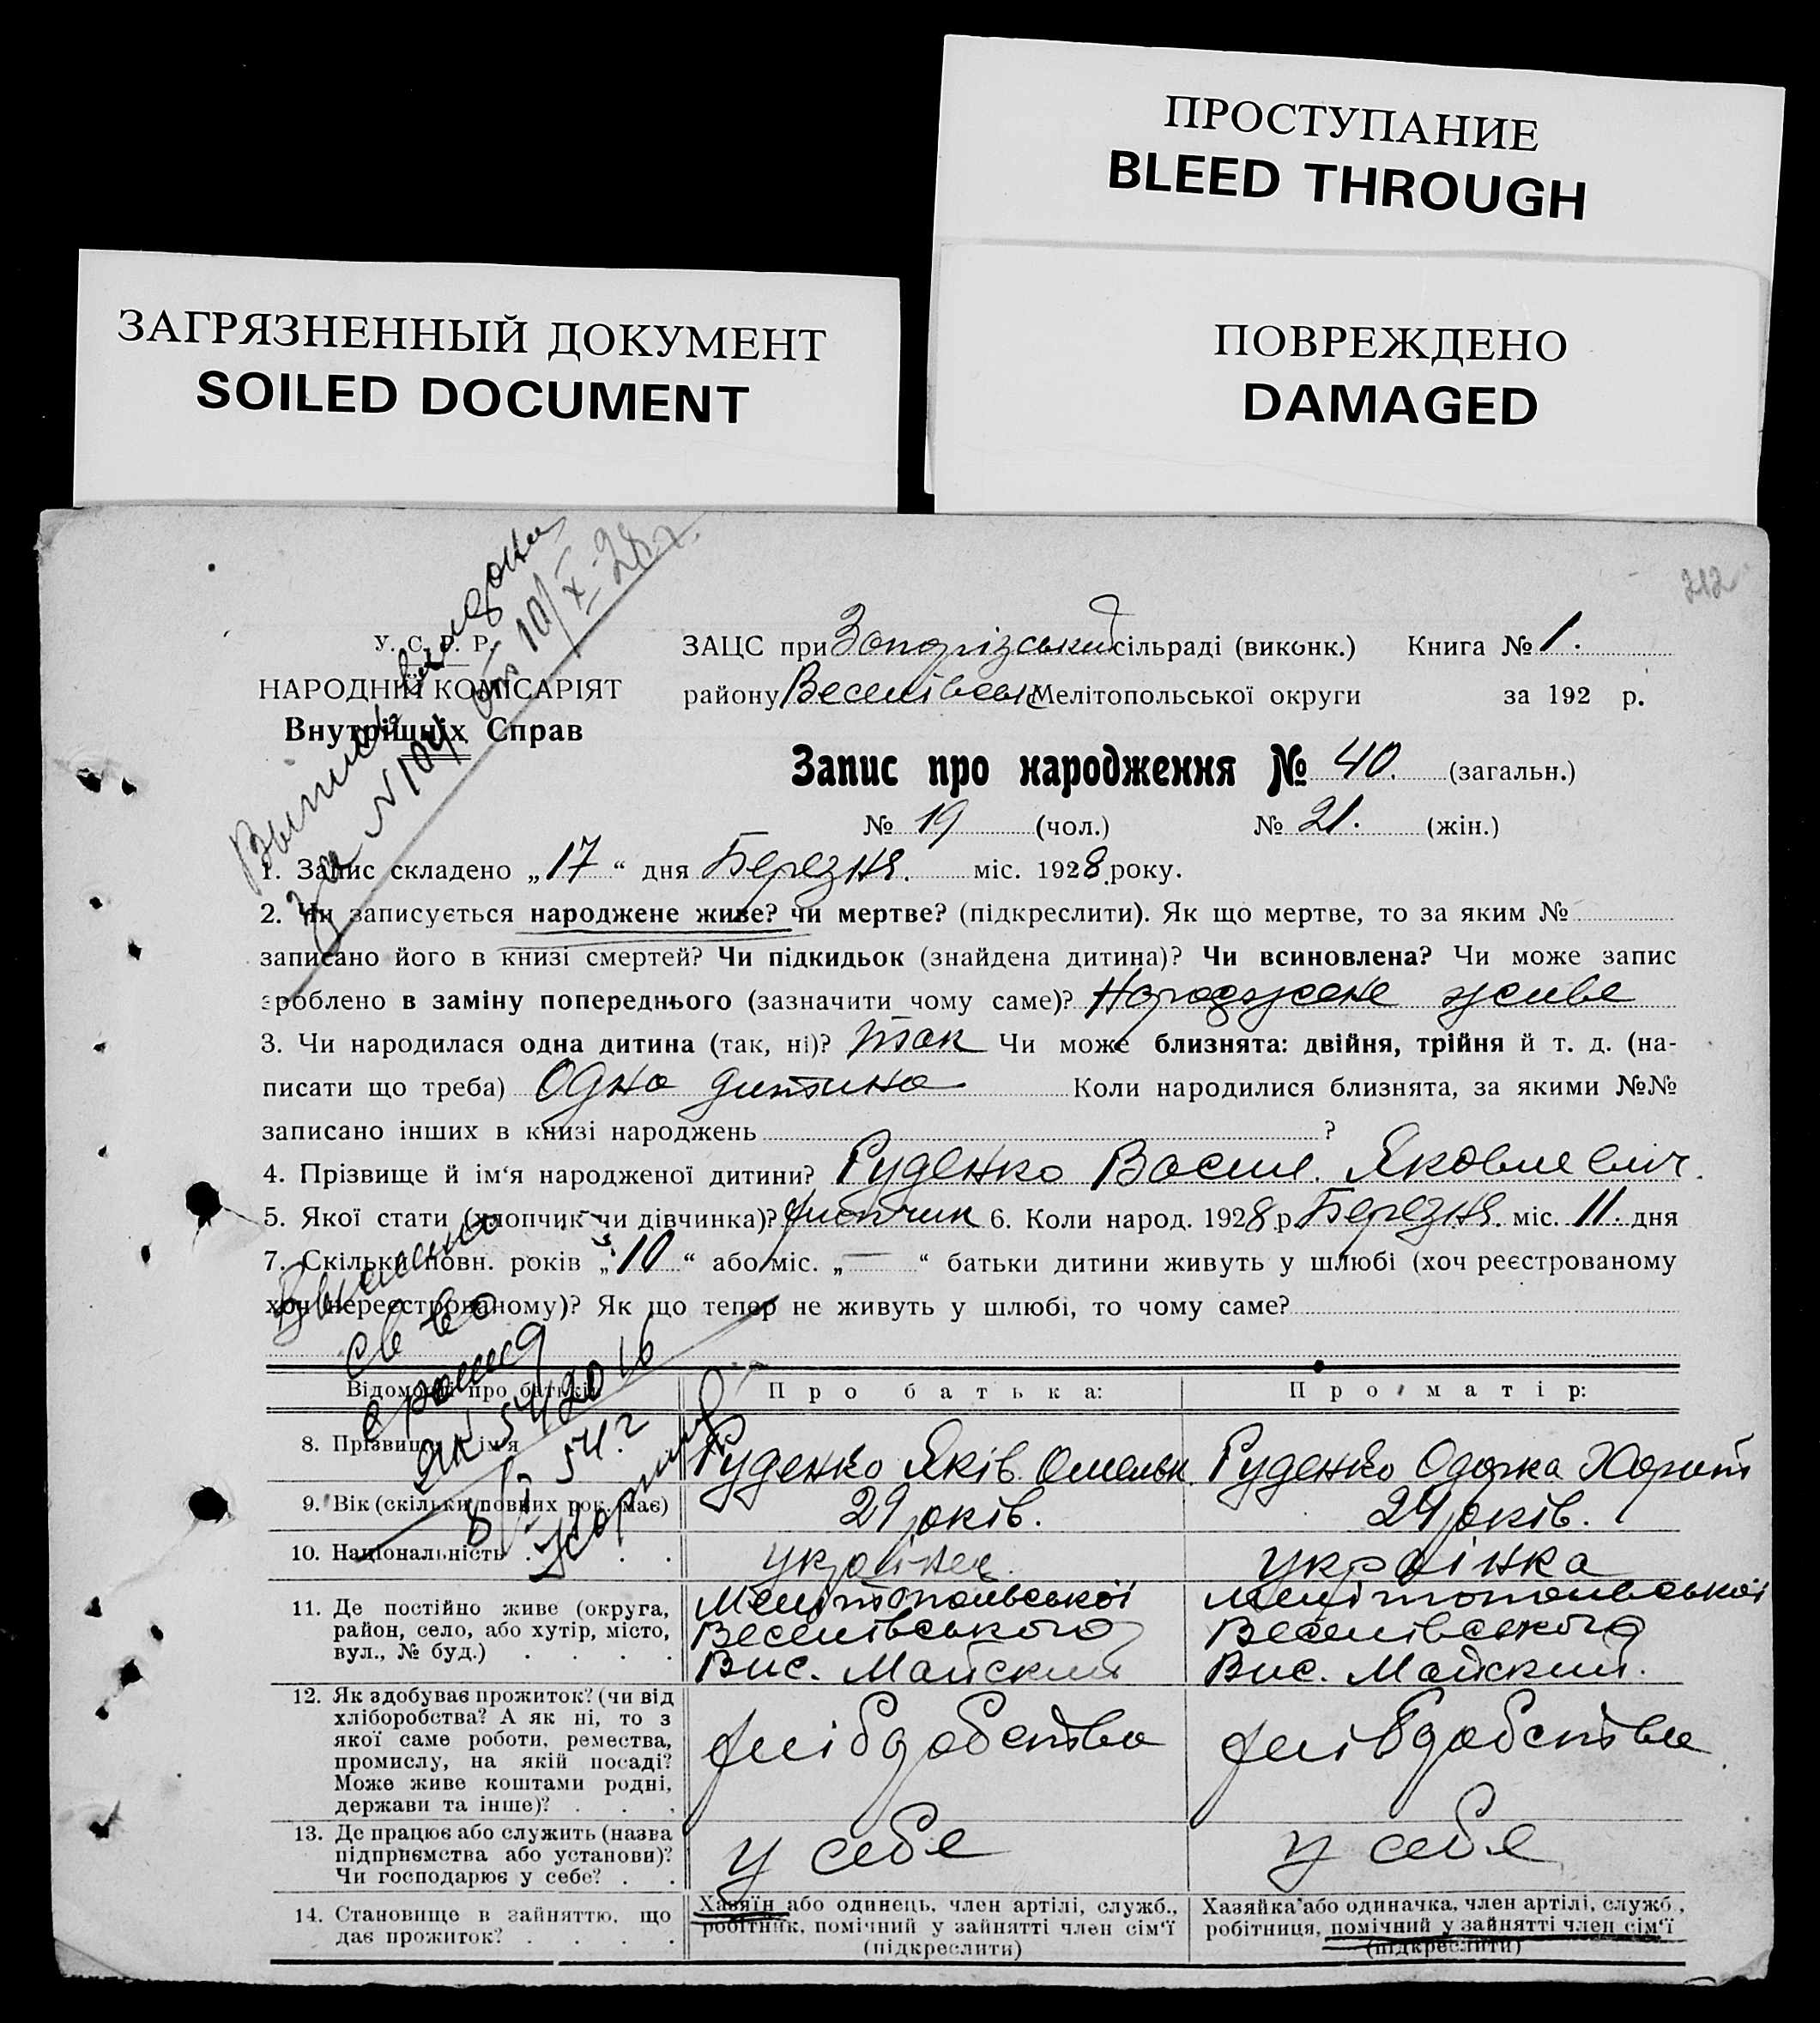 ПРОСТУПАНИЕ
BLEED THROUGH
ЗАГРЯЗНЕННЫЙ ДОКУМЕНТ
SOILED DOCUMENT
ПОВРЕЖДЕНО
DAMAGED
212
Выпись выдана
за №104 от 10/X-28 г.
У. С. Р. Р.
НАРОДНІЙ КОМІСАРІЯТ
Внутрішніх Справ
ЗАЦС при сільраді (виконк.) Книга № 1.
району Веселівськ Мелітопольської округи за 192 р.
Запис про народження № 40. (загальн.)
№ 19 (чол.) № 21. (жін.)
1. Запис складено „17“ дня Березня. міс. 1928 року.
2. Чи записується народжене живе? чи мертве? (підкреслити). Як що мертве, то за яким №
записано його в книзі смертей? Чи підкидьок (знайдена дитина)? Чи всиновлена? Чи може запис
зроблено в заміну попереднього (зазначити чому саме)? Народжене живе
3. Чи народилася одна дитина (так, ні)? так Чи може близнята: двійня, трійня й т. д. (на-
писати що треба) Одна дитина Коли народилися близнята, за якими №№
записано інших в книзі народжень ?
4. Прізвище й ім‘я народженої дитини? Руденко Василь Яковлевич.
5. Якої стати (хлопчик чи дівчинка)? хлопчик 6. Коли народ. 1928 р. Березня. міс. 11. дня
7. Скільки повн. років „10“ або міс. „—“ батьки дитини живуть у шлюбі (хоч реєстрованому
хоч нереєстрованому)? Як що тепер не живуть у шлюбі, то чому саме?
св во
54 г
Відомості про батьків Про батька: Про матір:
8. Прізвище й ім‘я Руденко Яків Омельк Руденко Одарка Харит
9. Вік (скільки повних рок. має) 29 років. 29 років.
10. Національність . . . . українец українка
11. Де постійно живе (округа, Мелітопольської Мелітопольської
район, село, або хутір, місто, Веселівського Веселівського
вул., № буд.) . . . . Вис. Майский Вис. Майский.
12. Як здобуває прожиток? (чи від
хліборобства? А як ні, то з
якої саме роботи, ремества, хлібдобство хлібдобство
промислу, на якій посаді?
Може живе коштами родні,
держави та інше)? . . .
13. Де працює або служить (назва
підприємства або установи)? у себе у себе
Чи господарює у себе? . .
14. Становище в зайняттю, що Хазяїн або одинець, член артілі, служб., Хазяйка або одиначка, член артілі, служб.,
дає прожиток? . . . . робітник, помічний у зайнятті член сім‘ї робітниця, помічний у зайнятті член сім‘ї
(підкреслити) (підкреслити)